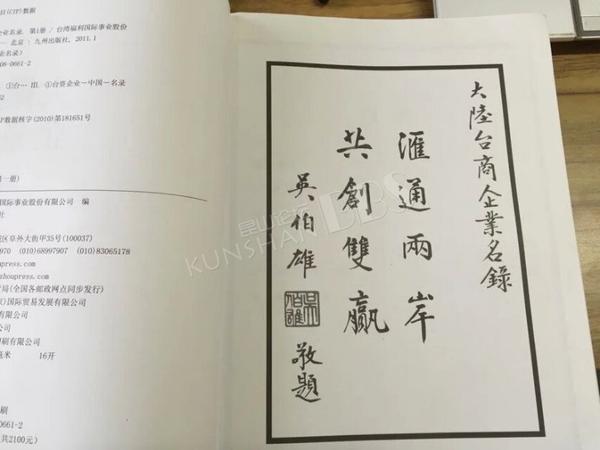 目(CIP)数据
企业名录. 第1册 / 台湾福利国际事业股份
— 北京 : 九州出版社, 2011.1
业名录)
08-0661-2
①台… III. ①台资企业—中国—名录
52
IP数据核字(2010)第181651号
一册)
国际事业股份有限公司 编
社
区阜外大街甲35号(100037)
970 (010)68997907 (010)83065178
zhoupress.com
ouupress.com
局(全国各邮政网点同步发行)
国际贸易发展有限公司
有限公司
有限公司
印刷有限公司
毫米 16开
印刷
0661-2
共2100元)
大陸台商企業名錄
滙通兩岸
共創雙贏
吳伯雄 敬題
KUNSHAN BBS